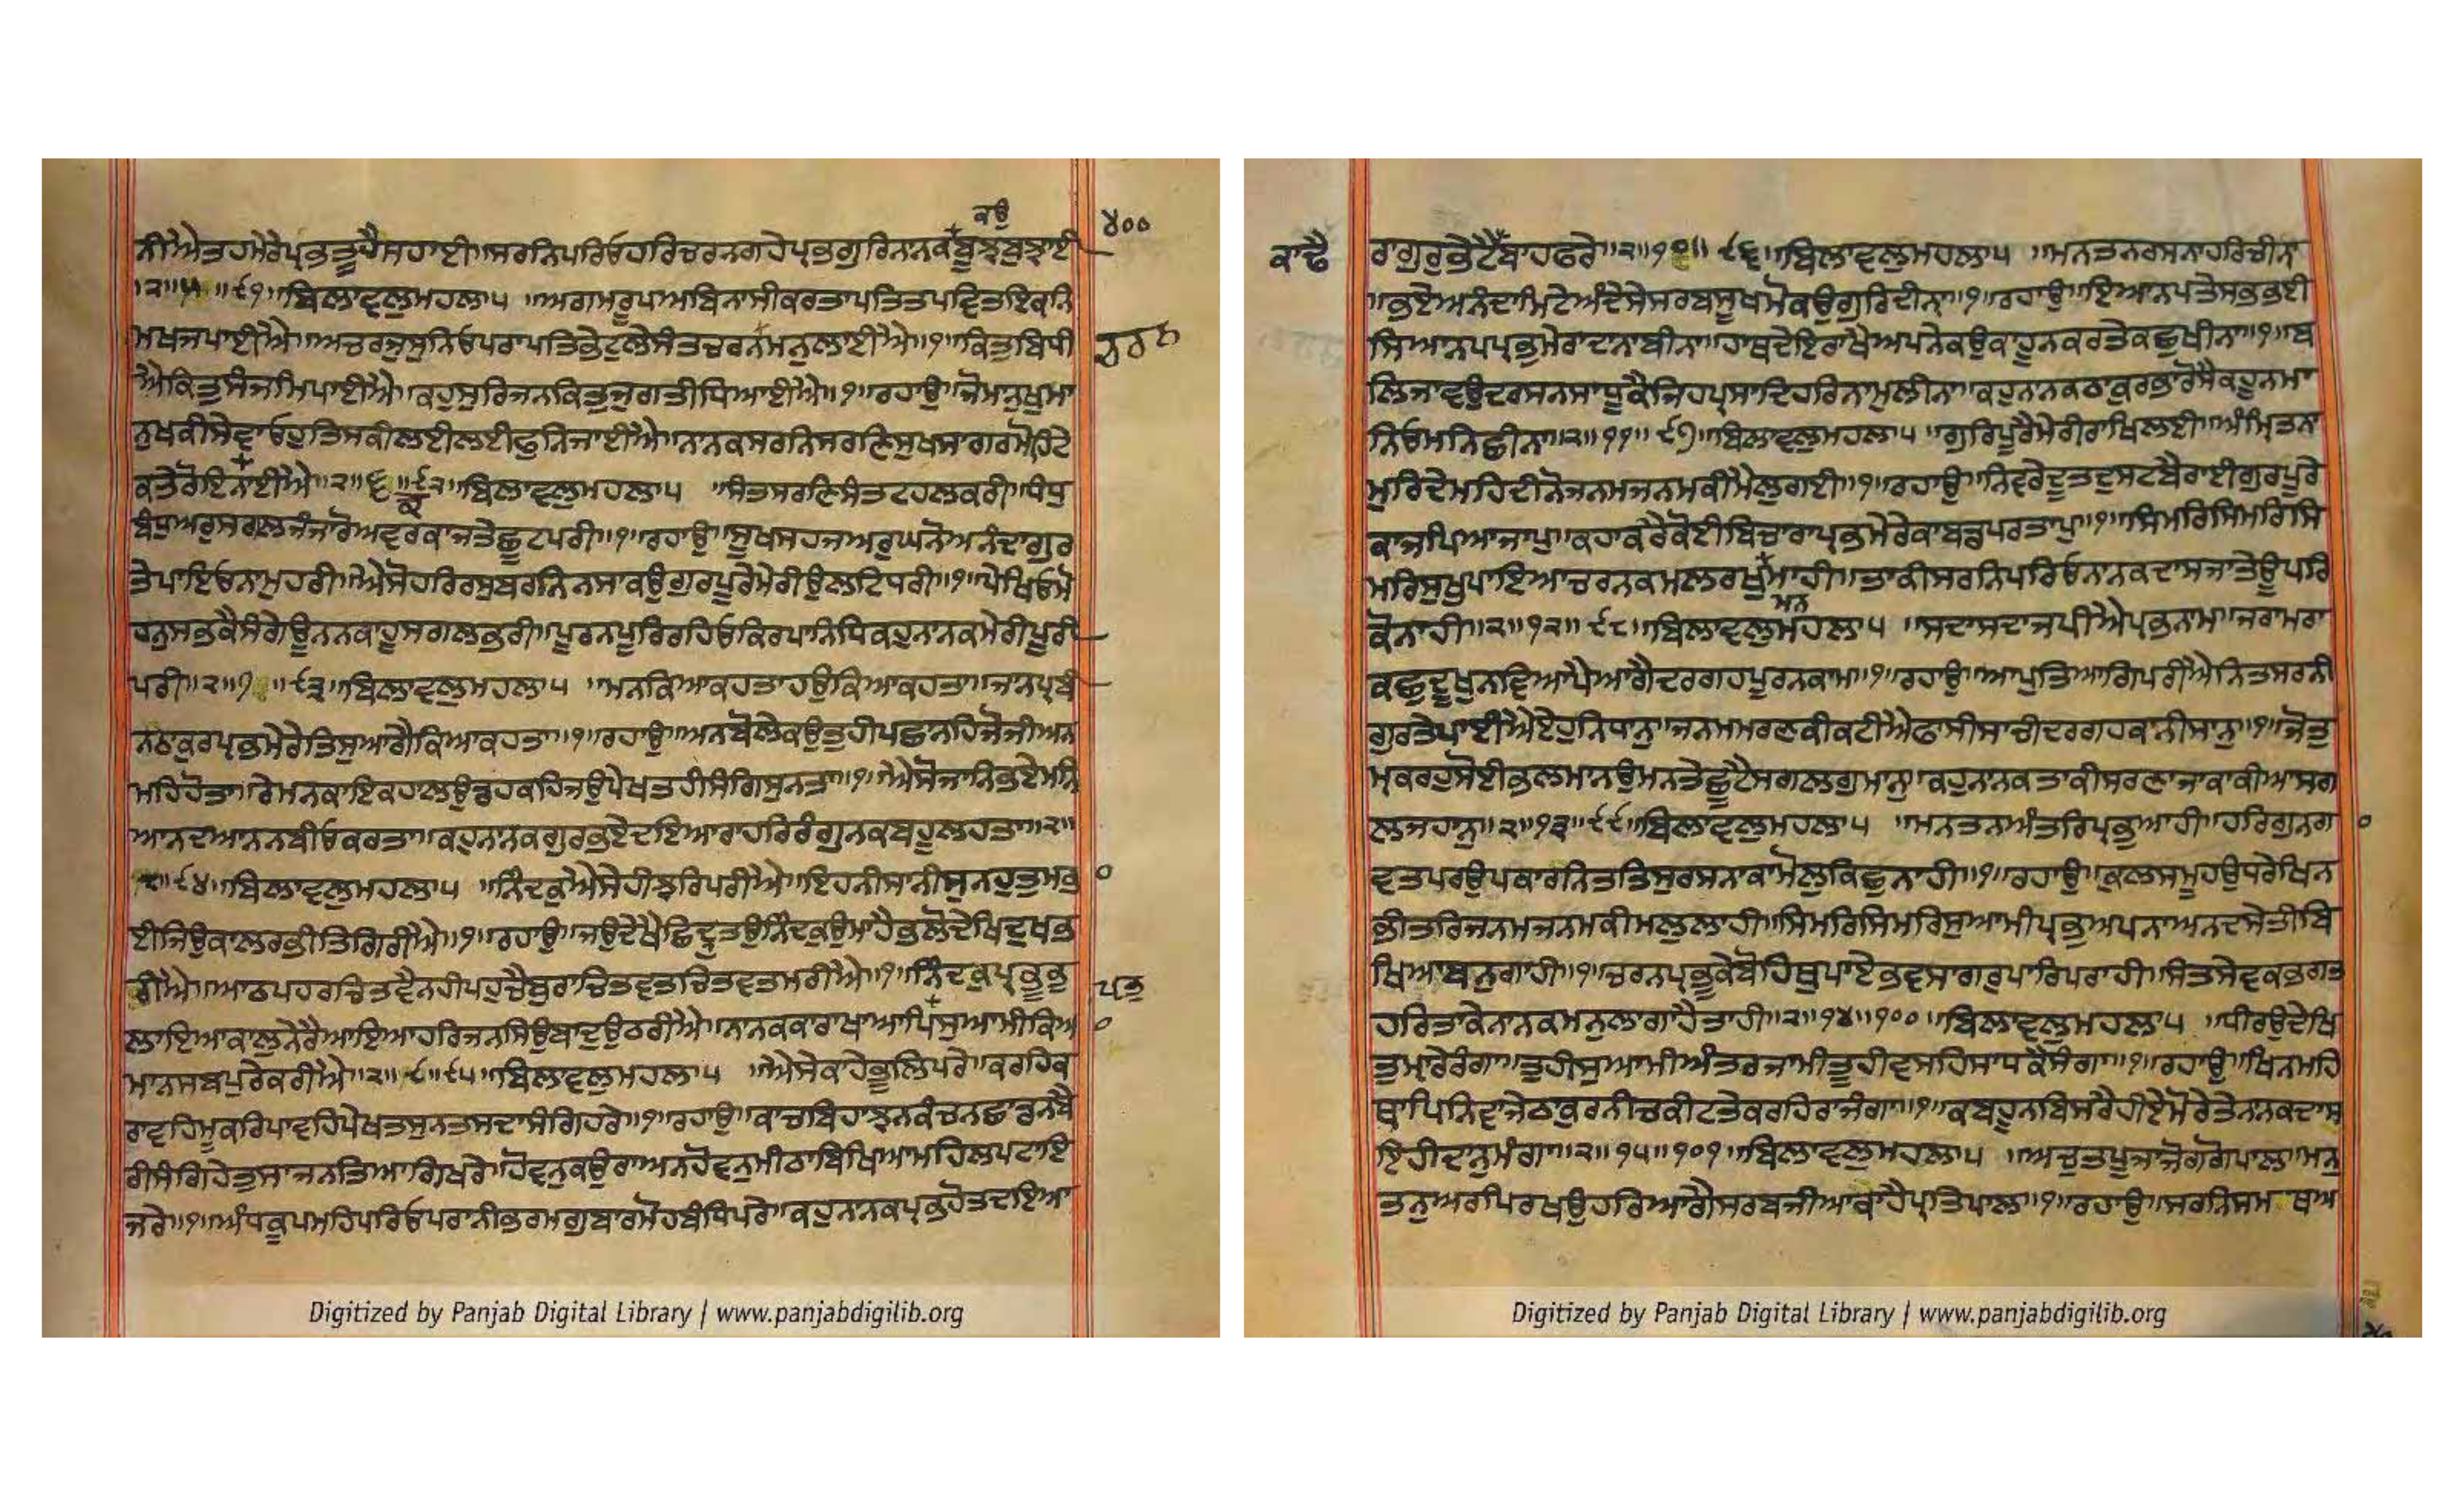 ਕਉ
ਨੀਐਤਹਮੇਰੇਪ੍ਰਭਤੂਹੈਸਹਾਈ॥ਸਰਨਿਪਰਿਓਹਰਿਚਰਨਗਹੇਪ੍ਰਭਗੁਰਿਨਾਨਕਬੂਝਬੁਝਾਈ
੪੦੦
॥੨॥੫॥੯੧॥ਬਿਲਾਵਲੁਮਹਲਾ੫ ॥ਅਗਮਰੂਪਅਬਿਨਾਸੀਕਰਤਾਪਤਿਤਪਵਿਤਇਕਨਿ
ਮਖਜਪਾਈਐ॥ਅਚਰਜੁਸੁਨਿਓਪਰਾਪਤਿਭੇਟੁਲੇਸੰਤਚਰਨਮਨੁਲਾਈਐ॥੧॥ਕਿਤੁਬਿਧੀ
ਐਕਿਤੁਸੰਜਮਿਪਾਈਐ॥ਕਹੁਸੁਰਿਜਨਕਿਤੁਜੁਗਤੀਧਿਆਈਐ॥੧॥ਰਹਾਉ॥ਜੋਮਾਨੁਖੁਮਾ
ਨੁਖਕੀਸੇਵਾਓਹੁਤਿਸਕੀਲਈਲਈਫੁਨਿਜਾਈਐ॥ਨਾਨਕਸਰਨਿਸਰਣਿਸੁਖਸਾਗਰਮੋਹਿਟੇ
ਕਤੇਰੋਇਨਾਈਐ॥੨॥੬॥੯੨॥ਬਿਲਾਵਲੁਮਹਲਾ੫ ॥ਸੰਤਸਰਣਿਸੰਤਟਹਲਕਰੀ॥ਧੰਧੁ
ਬੰਧੁਅਰੁਸਗਲਜੰਜਾਰੋਅਵਰਕਾਜਤੇਛੂਟਪਰੀ॥੧॥ਰਹਾਉ॥ਸੂਖਸਹਜਅਰੁਘਨੋਅਨੰਦਾਗੁਰ
ਤੇਪਾਇਓਨਾਮੁਹਰੀ॥ਐਸੋਹਰਿਰਸੁਬਰਨਿਨਸਾਕਉਗੁਰਪੂਰੈਮੇਰੀਉਲਟਿਧਰੀ॥੧॥ਪੇਖਿਓਮੋ
ਹਨੁਸਭਕੈਸੰਗੇਊਨਨਕਾਹੂਸਗਲਭਰੀ॥ਪੂਰਨਪੂਰਿਰਹਿਓਕਿਰਪਾਨਿਧਿਕਹੁਨਾਨਕਮੇਰੀਪੂਰੀ
ਪਰੀ॥੨॥੭॥੯੩॥ਬਿਲਾਵਲੁਮਹਲਾ੫ ॥ਮਨਕਿਆਕਹਤਾਹਉਕਿਆਕਹਤਾ॥ਜਾਨਪ੍ਰਬੀ
ਨਠਾਕੁਰਪ੍ਰਭਮੇਰੇਤਿਸੁਆਗੈਕਿਆਕਹਤਾ॥੧॥ਰਹਾਉ॥ਅਨਬੋਲੇਕਉਤੁਹੀਪਛਾਨਹਿਜੋਜੀਅਨ
ਮਹਿਹੋਤਾ॥ਰੇਮਨਕਾਇਕਹਾਲਉਡਹਕਹਿਜਉਪੇਖਤਹੀਸੰਗਿਸੁਨਤਾ॥੧॥ਐਸੋਜਾਨਿਭਏਮਨਿ
ਆਨਦਆਨਨਬੀਓਕਰਤਾ॥ਕਹੁਨਾਨਕਗੁਰਭਏਦਇਆਰਾਹਰਿਰੰਗੁਨਕਬਹੂਲਹਤਾ॥੨॥
੮॥੯੪॥ਬਿਲਾਵਲੁਮਹਲਾ੫ ॥ਨਿੰਦਕੁਐਸੇਹੀਝਰਿਪਰੀਐ॥ਇਹਨੀਸਾਨੀਸੁਨਹੁਤੁਮਭ
ਈਜਿਉਕਾਲਰਭੀਤਿਗਿਰੀਐ॥੧॥ਰਹਾਉ॥ਜਉਦੇਖੈਛਿਦ੍ਰੁਤਉਨਿੰਦਕੁਉਮਾਹੈਭਲੋਦੇਖਿਦੁਖਭ
ਰੀਐ॥ਆਠਪਹਰਚਿਤਵੈਨਹੀਪਹੁਚੈਬੁਰਾਚਿਤਵਤਚਿਤਵਤਮਰੀਐ॥੧॥ਨਿੰਦਕੁਪ੍ਰਭੂਭੁ
ਲਾਇਆਕਾਲੁਨੇਰੈਆਇਆਹਰਿਜਨਸਿਉਬਾਦੁਉਠਰੀਐ॥ਨਾਨਕਕਾਰਾਖਾਆਪਿਸੁਆਮੀਕਿਆ
ਮਾਨਸਬਪੁਰੇਕਰੀਐ॥੨॥੯॥੯੫॥ਬਿਲਾਵਲੁਮਹਲਾ੫ ॥ਐਸੇਕਾਹੇਭੂਲਿਪਰੇ॥ਕਰਹਿਕ
ਰਾਵਹਿਮੂਕਰਿਪਾਵਹਿਪੇਖਤਸੁਨਤਸਦਾਸੰਗਿਹਰੇ॥੧॥ਰਹਾਉ॥ਕਾਚਬਿਹਾਝਨਕੰਚਨਛਾਡਨਬੈ
ਰੀਸੰਗਿਹੇਤੁਸਾਜਨਤਿਆਗਿਖਰੇ॥ਹੋਵਨੁਕਉਰਾਅਨਹੋਵਨੁਮੀਠਾਬਿਖਿਆਮਹਿਲਪਟਾਇ
ਜਰੇ॥੧॥ਅੰਧਕੂਪਮਹਿਪਰਿਓਪਰਾਨੀਭਰਮਗੁਬਾਰਮੋਹਬੰਧਿਪਰੇ॥ਕਹੁਨਾਨਕਪ੍ਰਭਹੋਤਦਇਆ
Digitized by Panjab Digital Library | www.panjabdigilib.org
ਕਾਢੈ
ਰਾਗੁਰੁਭੇਟੈਬਾਹਫਰੇ॥੨॥੧੦॥੯੬॥ਬਿਲਾਵਲੁਮਹਲਾ੫ ॥ਮਨਤਨਰਸਨਾਹਰਿਚੀਨਾ
॥ਭਏਅਨੰਦਾਮਿਟੇਅੰਦੇਸੇਸਰਬਸੂਖਮੋਕਉਗੁਰਿਦੀਨਾ॥੧॥ਰਹਾਉ॥ਇਆਨਪਤੇਸਭਭਈ
ਸਿਆਨਪਪ੍ਰਭੁਮੇਰਾਦਾਨਾਬੀਨਾ॥ਹਾਥਦੇਇਰਾਖੈਅਪਨੇਕਉਕਾਹੂਨਕਰਤੇਕਛੁਖੀਨਾ॥੧॥ਬ
ਲਿਜਾਵਉਦਰਸਨਸਾਧੂਕੈਜਿਹਪ੍ਰਸਾਦਿਹਰਿਨਾਮੁਲੀਨਾ॥ਕਹੁਨਾਨਕਠਾਕੁਰਭਾਰੋਸੈਕਹੂਨਮਾ
ਨਿਓਮਨਿਛੀਨਾ॥੨॥੧੧॥੯੭॥ਬਿਲਾਵਲੁਮਹਲਾ੫ ॥ਗੁਰਿਪੂਰੈਮੇਰੀਰਾਖਿਲਈ॥ਅੰਮ੍ਰਿਤਨਾ
ਮੁਰਿਦੇਮਹਿਦੀਨੋਜਨਮਜਨਮਕੀਮੈਲੁਗਈ॥੧॥ਰਹਾਉ॥ਨਿਵਰੇਦੂਤਦੁਸਟਬੈਰਾਈਗੁਰਪੂਰੇ
ਕਾਜਪਿਆਜਾਪੁ॥ਕਹਾਕਰੈਕੋਈਬਿਚਾਰਾਪ੍ਰਭਮੇਰੇਕਾਬਡਪਰਤਾਪੁ॥੧॥ਸਿਮਰਿਸਿਮਰਿਸਿ
ਮਰਿਸੁਖੁਪਾਇਆਚਰਨਕਮਲਰਖੁਮਾਹੀ॥ਤਾਕੀਸਰਨਿਪਰਿਓਨਾਨਕਦਾਸਜਾਤੇਊਪਰਿ
ਮਨ
ਕੋਨਾਹੀ॥੨॥੧੨॥੯੮॥ਬਿਲਾਵਲੁਮਹਲਾ੫ ॥ਸਦਾਸਦਾਜਪੀਐਪ੍ਰਭਨਾਮ॥ਜਰਾਮਰਾ
ਕਛੁਦੂਖੁਨਵਿਆਪੈਆਗੈਦਰਗਹਪੂਰਨਕਾਮ॥੧॥ਰਹਾਉ॥ਆਪੁਤਿਆਗਿਪਰੀਐਨਿਤਸਰਨੀ
ਗੁਰਤੇਪਾਈਐਏਹੁਨਿਧਾਨੁ॥ਜਨਮਮਰਣਕੀਕਟੀਐਫਾਸੀਸਾਚੀਦਰਗਹਕਾਨੀਸਾਨੁ॥੧॥ਜੋਤੁ
ਮ੍ਹਕਰਹੁਸੋਈਭਲਮਾਨਉਮਨਤੇਛੂਟੈਸਗਲਗੁਮਾਨੁ॥ਕਹੁਨਾਨਕਤਾਕੀਸਰਣਾਜਾਕਾਕੀਆਸਗ
ਲਜਹਾਨੁ॥੨॥੧੩॥੯੯॥ਬਿਲਾਵਲੁਮਹਲਾ੫ ॥ਮਨਤਨਅੰਤਰਿਪ੍ਰਭੁਆਹੀ॥ਹਰਿਗੁਨਗਾ
ਵਤਪਰਉਪਕਾਰਨਿਤਤਿਸੁਰਸਨਾਕਾਮੋਲੁਕਿਛੁਨਾਹੀ॥੧॥ਰਹਾਉ॥ਕੁਲਸਮੂਹਉਧਰੇਖਿਨ
ਭੀਤਰਿਜਨਮਜਨਮਕੀਮਲੁਲਾਹੀ॥ਸਿਮਰਿਸਿਮਰਿਸੁਆਮੀਪ੍ਰਭੁਅਪਨਾਅਨਦਸੇਤੀਬਿ
ਖਿਆਬਨੁਗਾਹੀ॥੧॥ਚਰਨਪ੍ਰਭੂਕੇਬੋਹਿਥੁਪਾਏਭਵਸਾਗਰੁਪਾਰਿਪਰਾਹੀ॥ਸੰਤਸੇਵਕਭਗਤ
ਹਰਿਤਾਕੇਨਾਨਕਮਨੁਲਾਗਾਹੈਤਾਹੀ॥੨॥੧੪॥੧੦੦॥ਬਿਲਾਵਲੁਮਹਲਾ੫ ॥ਧੀਰਉਦੇਖਿ
ਤੁਮਾਰੇਰੰਗਾ॥ਤੂਹੀਸੁਆਮੀਅੰਤਰਜਾਮੀਤੂਹੀਵਸਹਿਸਾਧਕੈਸੰਗਾ॥੧॥ਰਹਾਉ॥ਖਿਨਮਹਿ
ਥਾਪਿਨਿਵਾਜੇਠਾਕੁਰਨੀਚਕੀਟਤੇਕਰਹਿਰਾਜੰਗਾ॥੧॥ਕਬਹੂਨਬਿਸਰੈਹੀਏਮੋਰੇਤੇਨਾਨਕਦਾਸ
ਇਹੀਦਾਨੁਮੰਗਾ॥੨॥੧੫॥੧੦੧॥ਬਿਲਾਵਲੁਮਹਲਾ੫ ॥ਅਚੁਤਪੂਜਾਜੋਗਗੋਪਾਲ॥ਮਨੁ
ਤਨੁਅਰਪਿਰਖਉਹਰਿਆਗੈਸਰਬਜੀਆਕਾਹੈਪ੍ਰਤਿਪਾਲ॥੧॥ਰਹਾਉ॥ਸਰਨਿਸਮ ਥਅ
Digitized by Panjab Digital Library | www.panjabdigilib.org